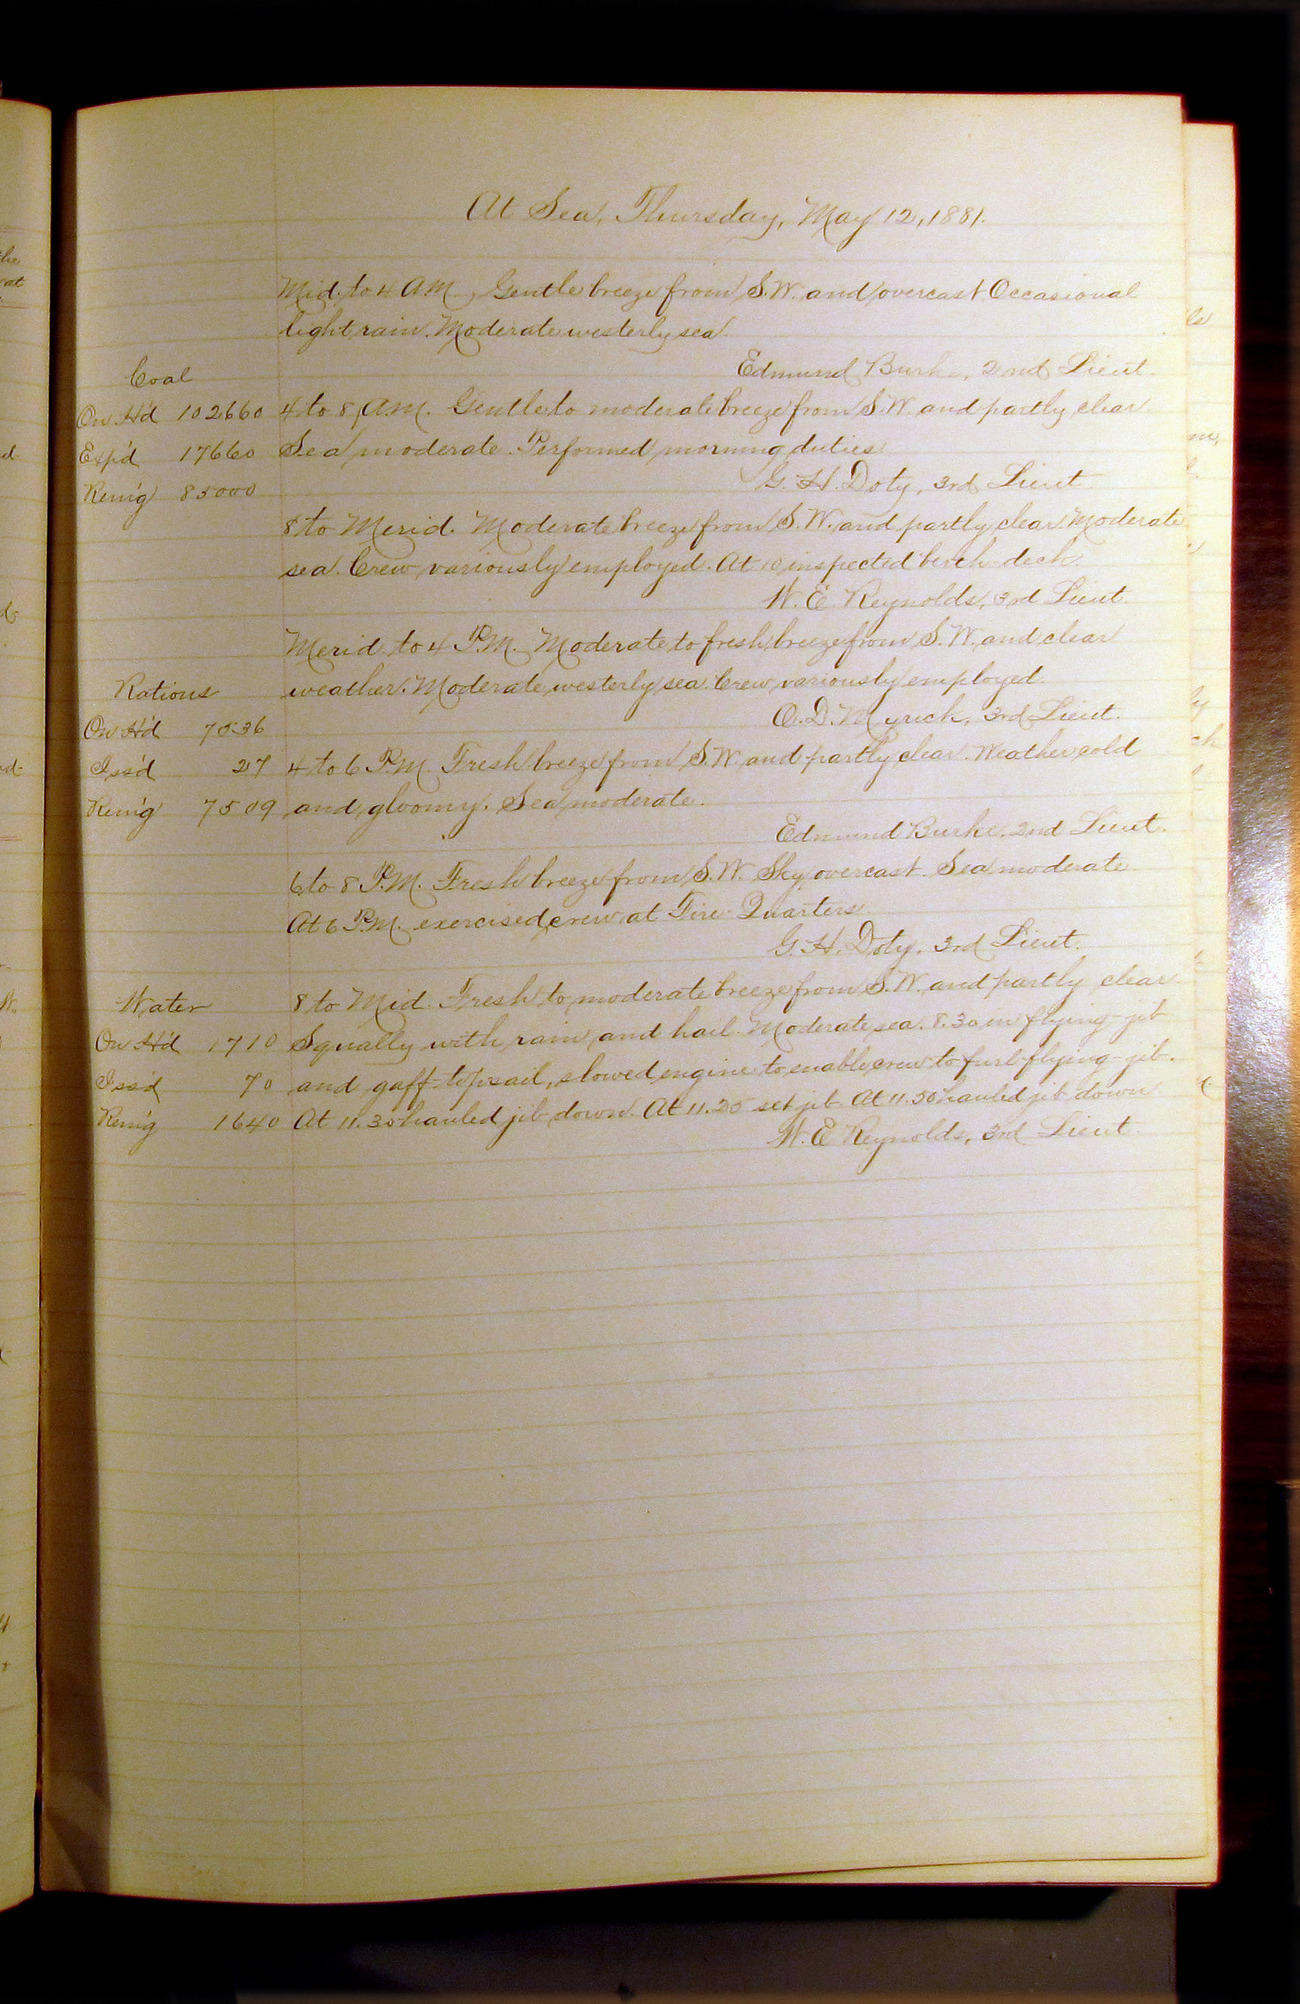 At Sea, Thursday, May 12, 1881.
Mid. to 4 A.M., Gentle breeze from S.W. and overcast Occasional
light rain. Moderate westerly sea
Edmund Burke, 2nd Lieut.
Coal
On H'd 102660
Exp'd 17660
Rem'g 85000
4 to 8, A.M. Gentle to moderate breeze from S.W. and partly clear
Sea moderate. Performed morning duties
G. H. Doty, 3rd Lieut
8 to Merid. Moderate breeze from S.W. and partly clear Moderate
sea. Crew variously employed. At 10 inspected berth-deck.
W. E. Reynolds, 3rd Lieut.
Merid. to 4 P.M. Moderate to fresh breeze from S.W. and clear
weather. Moderate westerly sea. Crew variously employed.
O. D. Myrick, 3rd Lieut.
Rations
On H'd 7536
Iss'd 27
Rem'g 7509
4 to 6 P.M. Fresh breeze from S.W. and partly clear. Weather cold
and gloomy. Sea moderate.
Edmund Burke, 2nd Lieut.
6 to 8 P.M. Fresh breeze from S.W. Sky overcast. Sea moderate
At 6 P.M. exercised crew at Fire Quarters.
G. H. Doty, 3rd Lieut.
Water
On H'd 1710
Iss'd 70
Rem'g 1640
8 to Mid. Fresh to moderate breeze from S.W. and partly clear
Squally with rain and hail. Moderate sea. 8.30 in flying-jib
and gaff-topsail, slowed engine to enable crew to furl flying-jib.
At 11.30 hauled jib down. At 11.25 set jib. At 11.50 hauled jib down
W. E. Reynolds, 3rd Lieut.